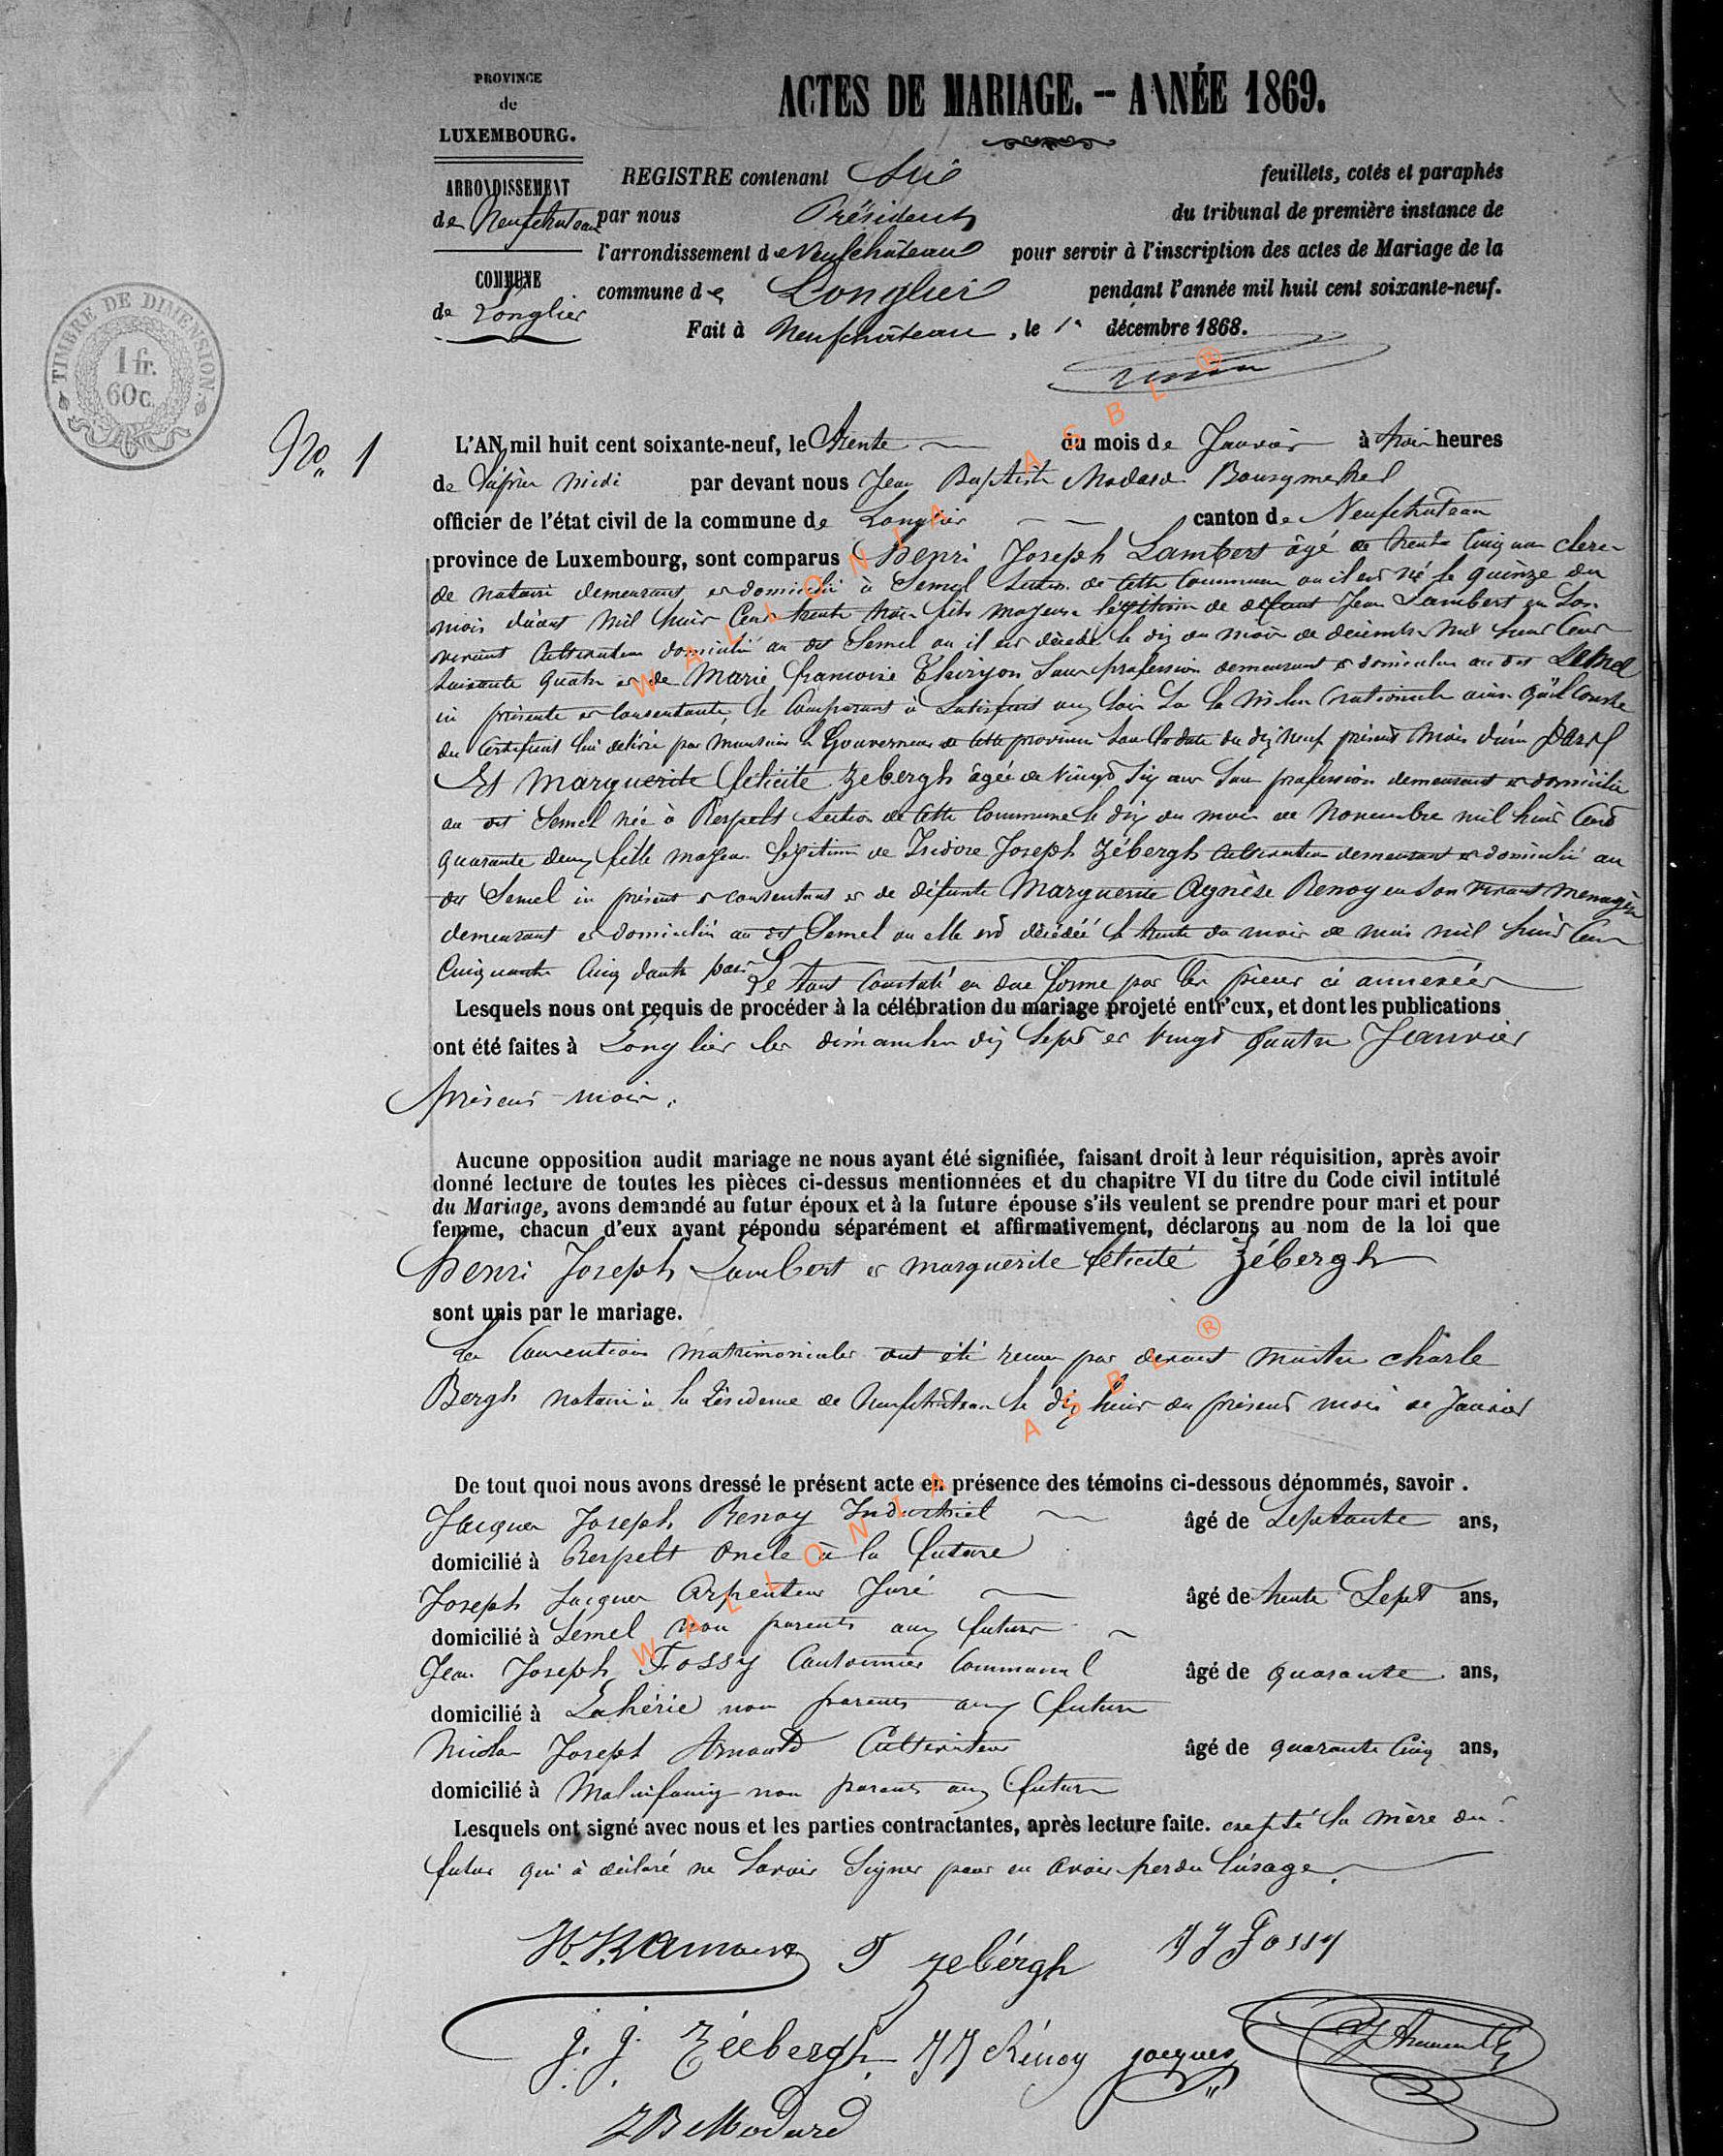 PROVINCE
de
LUXEMBOURG.
ARRONDISSEMENT
de Neufchateau
COMMUNE
de Longlier
TIMBRE DE DIMENSION
1 fr.
60 c.
ACTES DE MARIAGE. – ANNÉE 1869.
REGISTRE contenant feuillets, cotés et paraphés
par nous Président du tribunal de première instance de
l'arrondissement de Neufchâteau pour servir à l'inscription des actes de Mariage de la
commune de Longlier pendant l'année mil huit cent soixante-neuf.
Fait à Neufchâteau, le 1r décembre 1868.
No 1
L'AN mil huit cent soixante-neuf, le trente du mois de Janvier à trois heures
de l'après midi par devant nous Jean Baptiste Modard Bourgmestre
officier de l'état civil de la commune de Longlier canton de Neufchateau
province de Luxembourg, sont comparus Henri Joseph Lambert âgé de trente cinq ans clerc
de notaire demeurant et domicilié à Semel section de cette commune où il est né le quinze du
mois d'août mil huit cent trente trois fils majeur légitime de défunt Jean Lambert en son
vivant cultivateur domicilié au dit Semel où il est décédé le dix du mois de décembre mil huit cent
soixante quatre et de Marie françoise Thiryon sans profession demeurant et domiciliée au dit Semel
ici présente et consentante, le comparant à satisfait aux lois sur la milice nationale ainsi qu'il conste
du certificat lui délivré par Monsieur le Gouverneur de cette province sous la date du dix neuf présent mois d'une part
Et Marguerite félicité Zebergh âgée de vingt six ans sans profession demeurant et domiciliée
au dit Semel née à Respelt section de cette commune le dix du mois de Novembre mil huit cent
quarante deux fille majeure légitime de Isidore Joseph Zébergh cultivateur demeurant et domicilié au
dit Semel ici présent et consentant et de défunte Marguerite Agnèse Renoy en son vivant ménagère
demeurant et domiciliée au dit Semel où elle est décédée le trente du mois de mai mil huit cent
cinquante cinq d'autre part Le tout constaté en due forme par les pièces ci annexées
Lesquels nous ont requis de procéder à la célébration du mariage projeté entr'eux, et dont les publications
ont été faites à Longlier les dimanches dix sept et vingt quatre Janvier
présent mois.
Aucune opposition audit mariage ne nous ayant été signifiée, faisant droit à leur réquisition, après avoir
donné lecture de toutes les pièces ci-dessus mentionnées et du chapitre VI du titre du Code civil intitulé
du Mariage, avons demandé au futur époux et à la future épouse s'ils veulent se prendre pour mari et pour
femme, chacun d'eux ayant répondu séparément et affirmativement, déclarons au nom de la loi que
Henri Joseph Lambert et marguerite félicité Zébergh
sont unis par le mariage.
Les conventions matrimoniales ont été reçues par devant maitre charle
Bergh notaire à la résidence de Neufchateau le dix huit du présent mois de Janvier
De tout quoi nous avons dressé le présent acte en présence des témoins ci-dessous dénommés, savoir.
Jacques Joseph Renoy Industriel âgé de septante ans,
domicilié à Respelt oncle à la future
Joseph Jacques Arpenteur Juré âgé de trente sept ans,
domicilié à Semel non parent aux futurs
Jean Joseph Fossy Cantonnier communal âgé de quarante ans,
domicilié à Lahérie non parent aux futurs
Nicolas Joseph Arnould Cultivateur âgé de quarante cinq ans,
domicilié à Molinfaing non parent aux futurs
Lesquels ont signé avec nous et les parties contractantes, après lecture faite. excepté la mère du
futur qui à déclaré ne savoir signer pour en avoir perdu l'usage.
Zebérgh
J J Fossy
J. J. Zéebergh
J J Rénoy
jacques
J B Modard
WALLONIA ASBL ®
WALLONIA ASBL ®